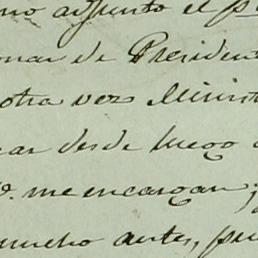 no adjunto el p
onar de Presiden
otra vez Minist
car desde luego
me encargan;
mucho antes, pu